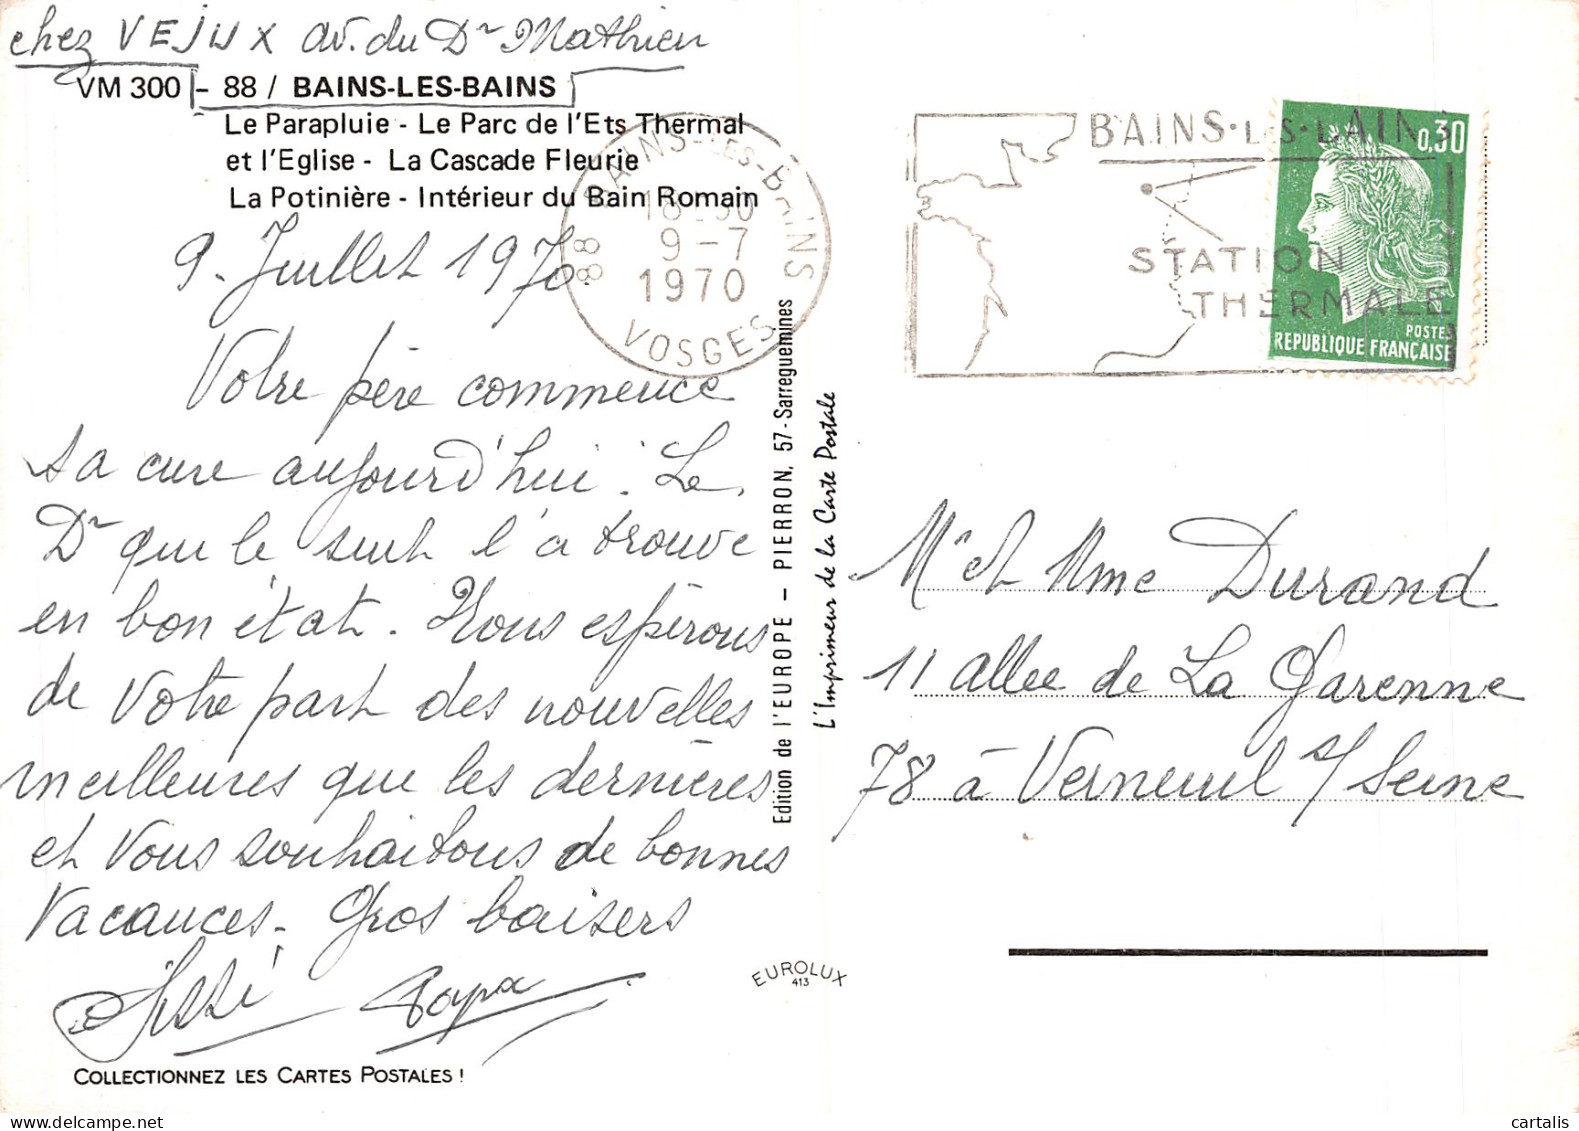 chez VEJUX av. du Dr Mathieu
VM 300 - 88 / BAINS-LES-BAINS
Le Parapluie - Le Parc de l'Ets Thermal
et l'Eglise - La Cascade Fleurie
La Potinière - Intérieur du Bain Romain
9. Juillet 1970.
Votre père commence
sa cure aujourd'hui. Le
Dr qui le suit l'a trouvé
en bon état. Nous espérons
de votre part des nouvelles
meilleures que les dernières
et vous souhaitons de bonnes
vacances. Gros baisers
Papa
COLLECTIONNEZ LES CARTES POSTALES !
88 BAINS-LES-BAINS
9-7
1970
VOSGES
Edition de l'EUROPE - PIERRON, 57-Sarreguemines
L'Imprimeur de la Carte Postale
EUROLUX
413
BAINS·LES·BAINS
STATION
THERMALE
0,30
POSTES
REPUBLIQUE FRANÇAISE
Mr et Mme Durand
11 allee de La Garenne
78 à Verneuil s/ Seine
cartalis
delcampe.net